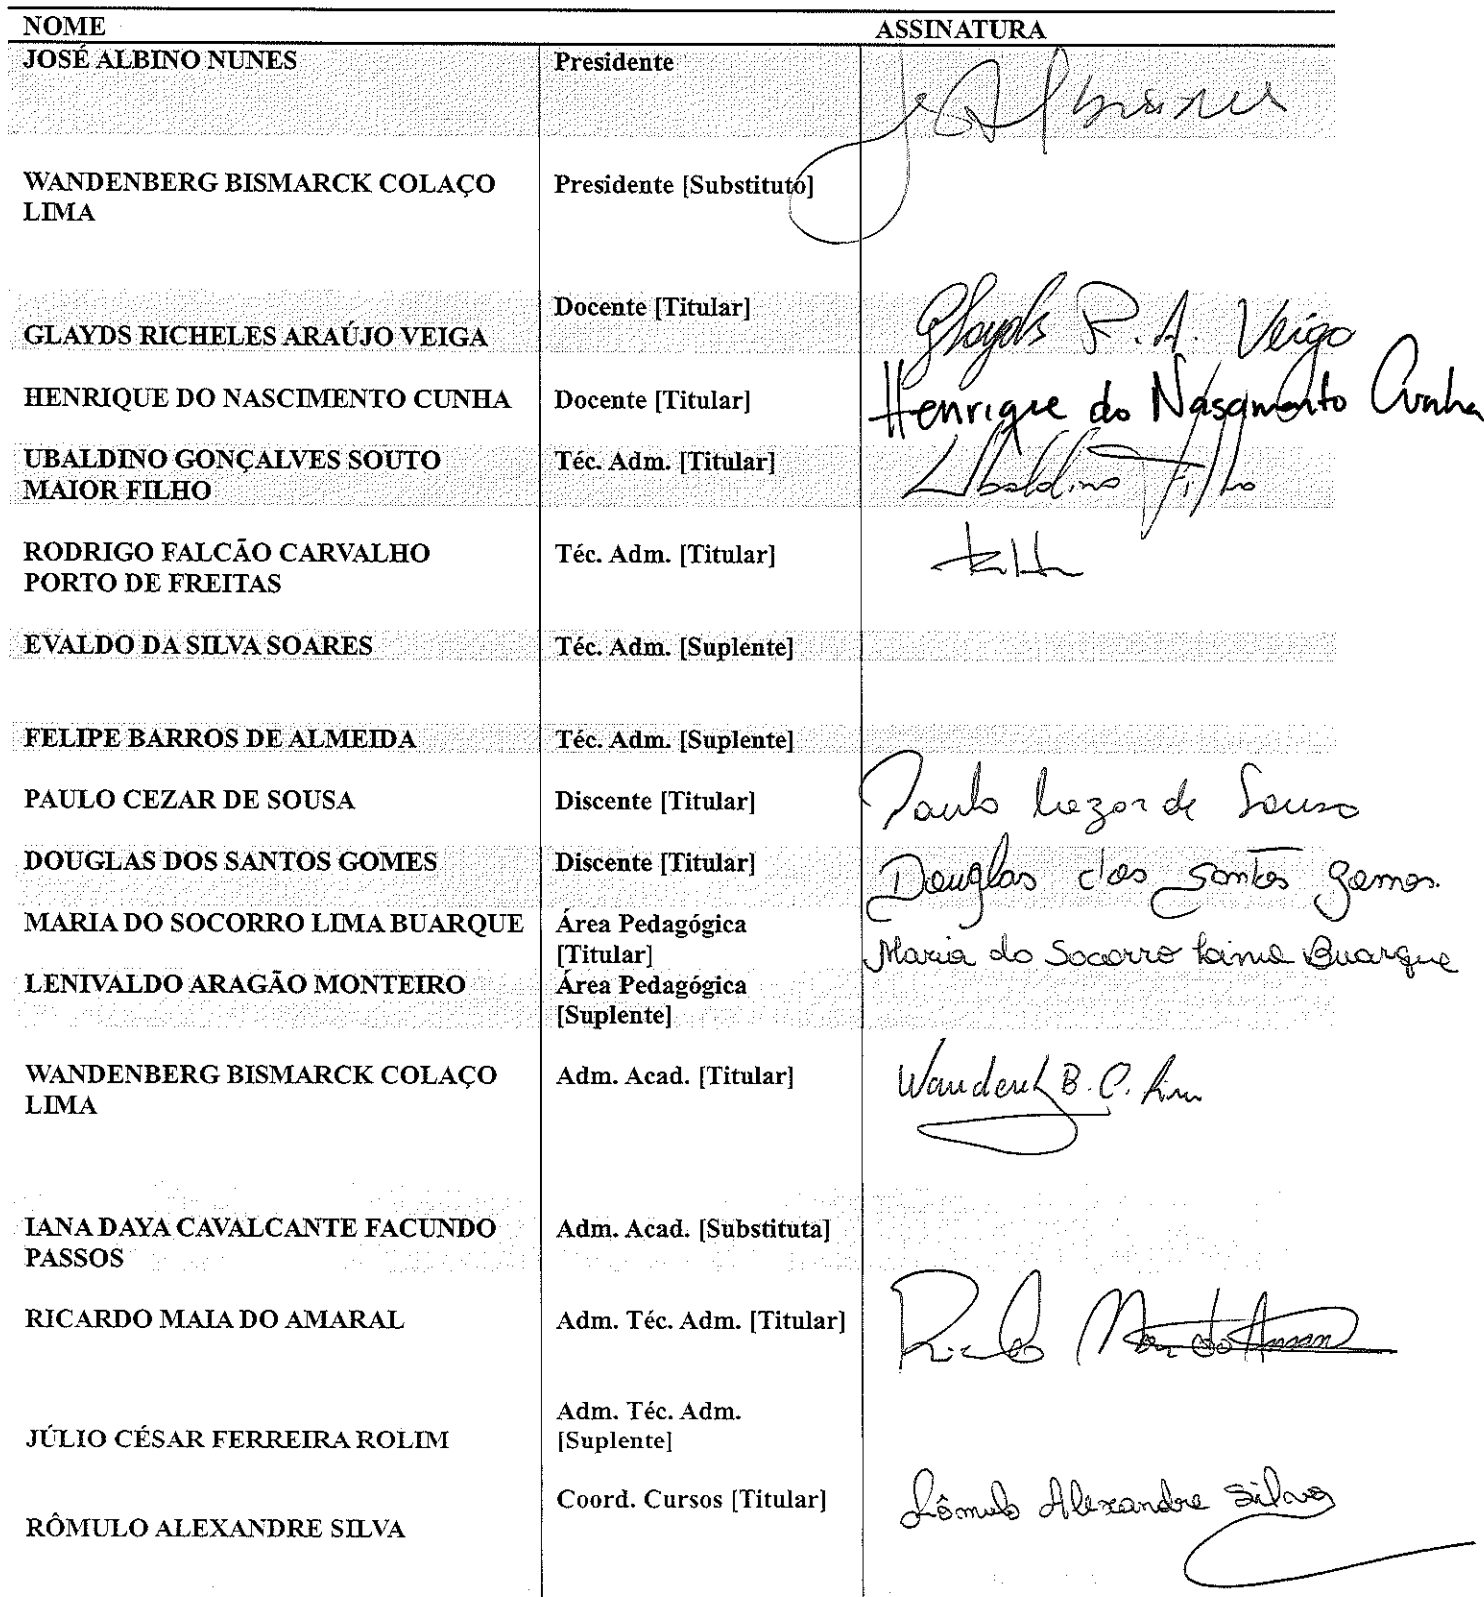 NOME ASSINATURA
JOSÉ ALBINO NUNES Presidente
WANDENBERG BISMARCK COLAÇO Presidente [Substituto]
LIMA
Docente [Titular]
GLAYDS RICHELES ARAÚJO VEIGA Glayds R. A. Veiga
HENRIQUE DO NASCIMENTO CUNHA Docente [Titular] Henrique do Nascimento Cunha
UBALDINO GONÇALVES SOUTO Téc. Adm. [Titular] Ubaldino Filho
MAIOR FILHO
RODRIGO FALCÃO CARVALHO Téc. Adm. [Titular]
PORTO DE FREITAS
EVALDO DA SILVA SOARES Téc. Adm. [Suplente]
FELIPE BARROS DE ALMEIDA Téc. Adm. [Suplente]
PAULO CEZAR DE SOUSA Discente [Titular] Paulo Cezar de Sousa
DOUGLAS DOS SANTOS GOMES Discente [Titular] Douglas dos Santos Gomes.
MARIA DO SOCORRO LIMA BUARQUE Área Pedagógica
[Titular] Maria do Socorro Lima Buarque
LENIVALDO ARAGÃO MONTEIRO Área Pedagógica
[Suplente]
WANDENBERG BISMARCK COLAÇO Adm. Acad. [Titular] B. C. Lima
LIMA
IANA DAYA CAVALCANTE FACUNDO Adm. Acad. [Substituta]
PASSOS
RICARDO MAIA DO AMARAL Adm. Téc. Adm. [Titular]
Adm. Téc. Adm.
JÚLIO CÉSAR FERREIRA ROLIM [Suplente]
Coord. Cursos [Titular] Rômulo Alexandre Silva
RÔMULO ALEXANDRE SILVA